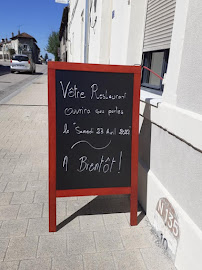 Vôtre Restaurant
ouvrira ses portes
le "Samedi 23 Avril 2022"
A Bientôt !
N°136